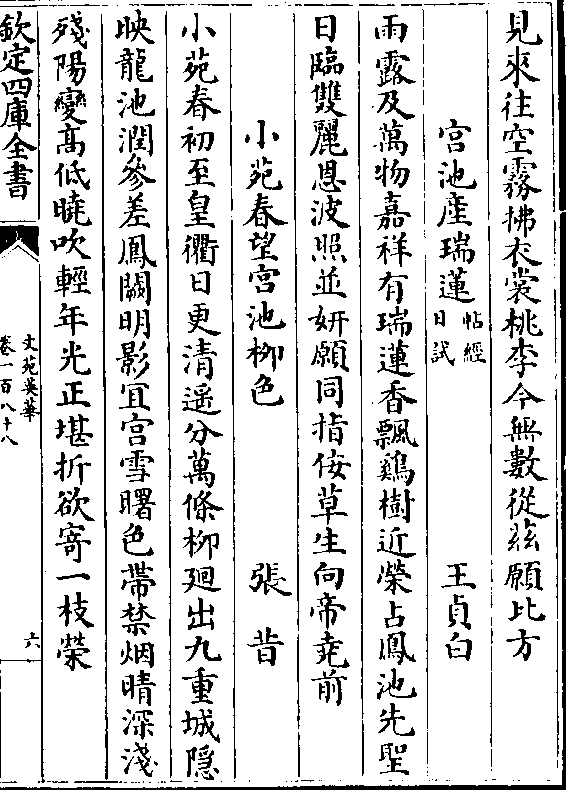 見來往空霧拂衣裳桃李今無數從兹願比方
宫池産瑞蓮 帖經日試 王貞白
雨露及萬物嘉祥有瑞蓮香飄鷄樹近榮占鳳池先聖
日臨雙麗恩波照並妍願同指佞草生向帝堯前
小苑春望宫池柳色 張昔
小苑春初至皇衢日更清遥分萬條柳廻出九重城隠
映龍池潤參差鳳闕明影宜宫雪曙色帶禁烟晴深淺
殘陽變髙低曉吹輕年光正堪折欲寄一枝榮
欽定四庫全書
文苑英華
卷一百八十八
六